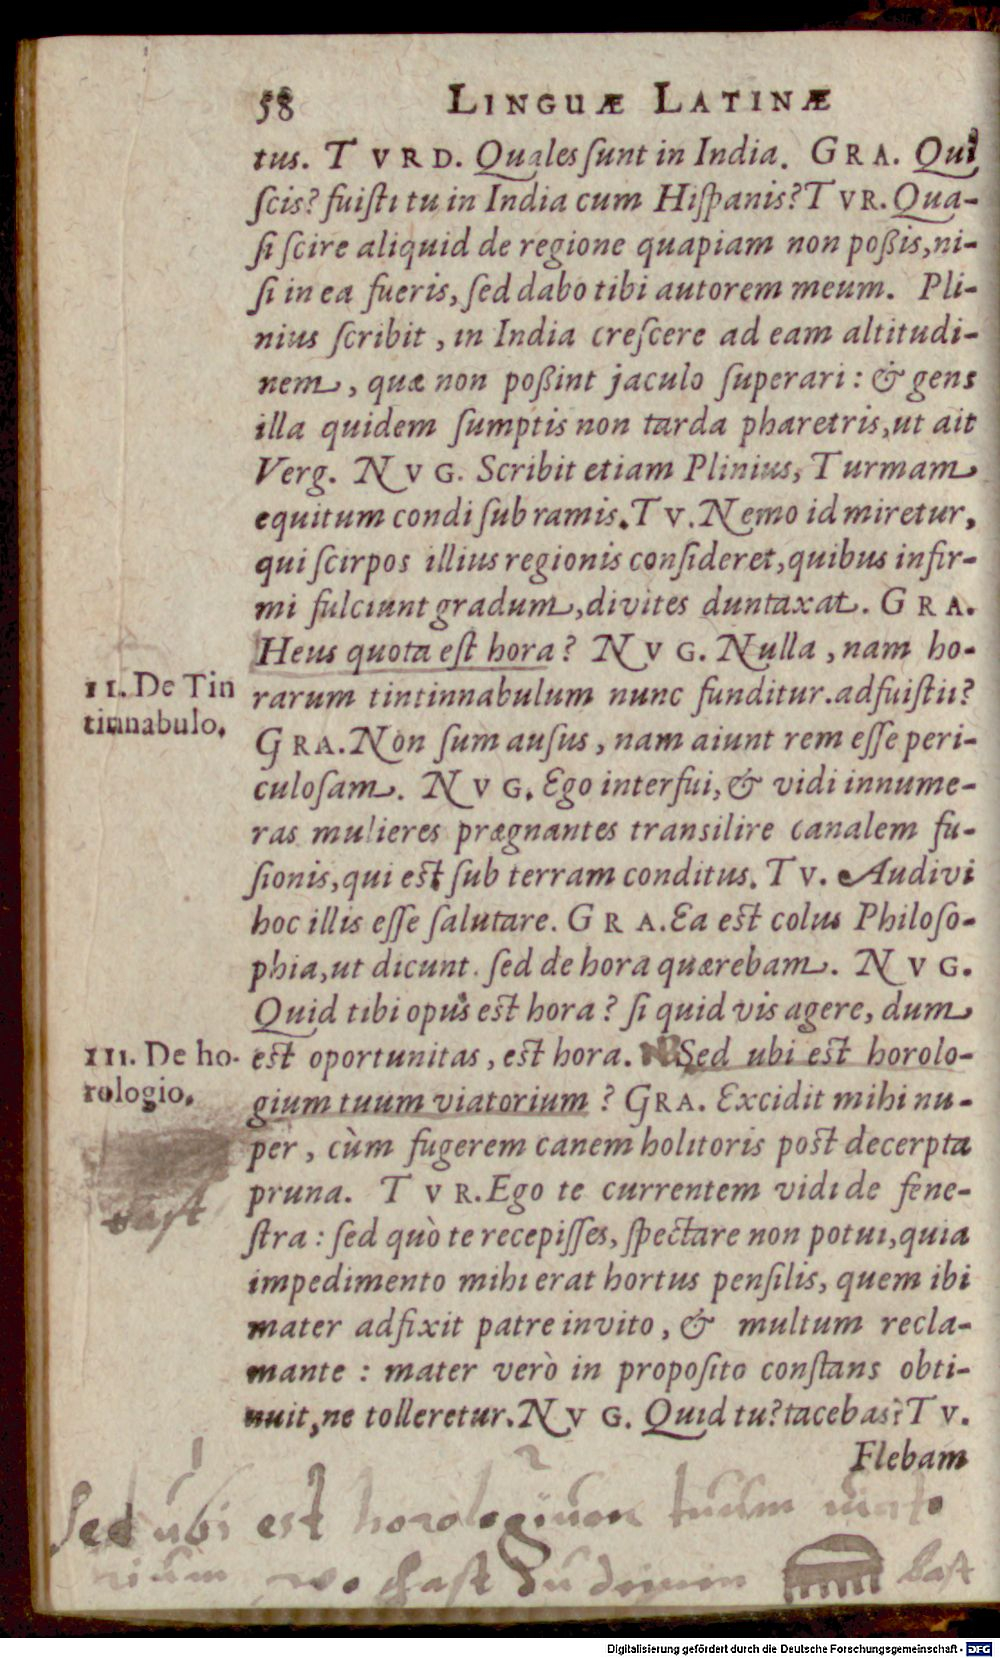 58 LINGUÆ LATINÆ
tus. TVRD. Quales ſunt in India. GRA. Qui
ſcis? fuiſti tu in India cum Hiſpanis? TVR. Qua-
ſi ſcire aliquid de regione quapiam non poßis, ni-
ſi in ea fueris, ſed dabo tibi autorem meum. Pli-
nius ſcribit, in India creſcere ad eam altitudi-
nem, quæ non poßint jaculo ſuperari: & gens
illa quidem ſumptis non tarda pharetris, ut ait
Verg. NVG. Scribit etiam Plinius, Turmam
equitum condi ſub ramis. TV. Nemo id miretur,
qui ſcirpos illius regionis conſideret, quibus infir-
mi fulciunt gradum, divites duntaxat. GRA.
Heus quota eſt hora? NVG. Nulla, nam ho-
11. De Tin
tinnabulo.
rarum tintinnabulum nunc funditur. adfuiſtii?
GRA. Non ſum auſus, nam aiunt rem eſſe peri-
culoſam. NVG. Ego interfui, & vidi innume-
ras mulieres prægnantes tranſilire canalem fu-
ſionis, qui eſt ſub terram conditus. TV. Audivi
hoc illis eſſe ſalutare. GRA. Ea eſt colus Philoſo-
phia, ut dicunt. ſed de hora quærebam. NVG.
Quid tibi opus eſt hora? ſi quid vis agere, dum
111. De ho-
rologio.
eſt oportunitas, eſt hora. Sed ubi eſt horolo-
gium tuum viatorium? GRA. Excidit mihi nu-
per, cùm fugerem canem holitoris poſt decerpta
pruna. TVR. Ego te currentem vidi de fene-
ſtra: ſed quò te recepiſſes, ſpectare non potui, quia
impedimento mihi erat hortus penſilis, quem ibi
mater adfixit patre invito, & multum recla-
mante: mater verò in propoſito conſtans obti-
nuit, ne tolleretur. NVG. Quid tu? tacebas? TV.
Flebam
Sed ubi est horologium tuum viato
rium wo haſt du
Digitalisierung gefördert durch die Deutsche Forschungsgemeinschaft - DFG